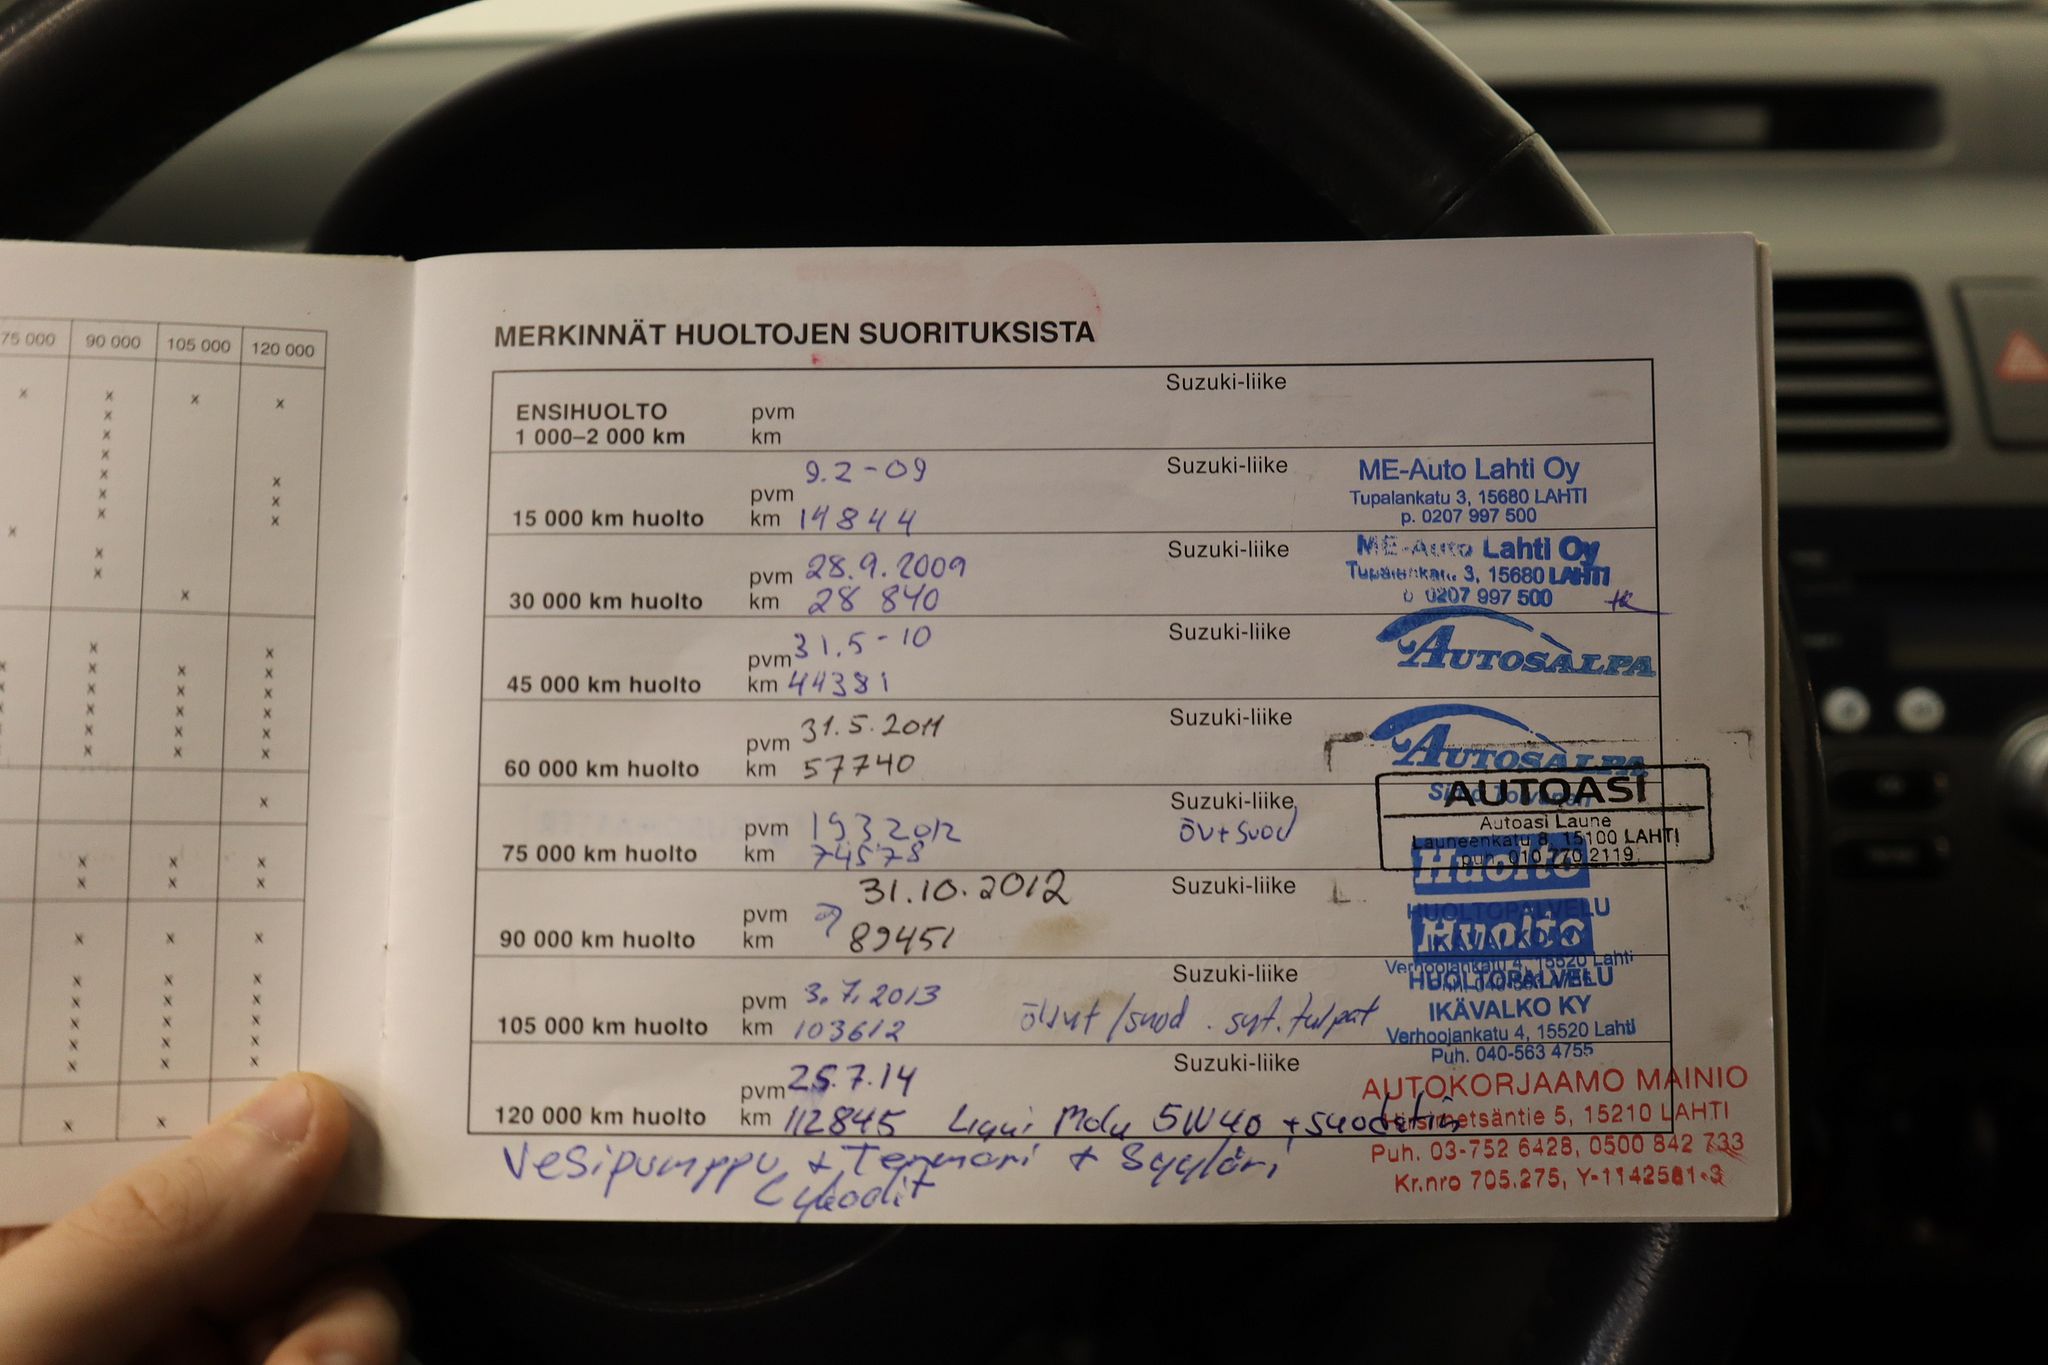 75 000 90 000 105 000 120 000
MERKINNÄT HUOLTOJEN SUORITUKSISTA
Suzuki-liike
ENSIHUOLTO pvm
1 000–2 000 km km
9.2-09 Suzuki-liike ME-Auto Lahti Oy
pvm Tupalankatu 3, 15680 LAHTI
15 000 km huolto km 14844 p. 0207 997 500
Suzuki-liike ME-Auto Lahti Oy
pvm 28.9.2009 Tupalankatu 3, 15680 LAHTI
30 000 km huolto km 28 840 p. 0207 997 500
Suzuki-liike
pvm 31.5-10 AUTOSALPA
45 000 km huolto km 44381
Suzuki-liike
pvm 31.5.2011 AUTOSALPA
60 000 km huolto km 57740
Suzuki-liike AUTOASI
pvm 19.3.2012 öv+suod Autoasi Laune
Launeenkatu 8, 15100 LAHTI
75 000 km huolto km 74578 puh. 010 770 2119
Huolto
31.10.2012 Suzuki-liike
pvm HUOLTOPALVELU
Huolto
90 000 km huolto km 89451 IKÄVALKO KY
Verhoojankatu 4, 15520 Lahti
Suzuki-liike HUOLTOPALVELU
pvm 3.7.2013 IKÄVALKO KY
105 000 km huolto km 103612 /suod. syt.tulpat Verhoojankatu 4, 15520 Lahti
Puh. 040-563 4755
Suzuki-liike
pvm 25.7.14 AUTOKORJAAMO MAINIO
120 000 km huolto km 112845 Liqui Moly 5W40 + suodatin 5, 15210 LAHTI
Vesipumppu + Termari + Puh. 03-752 6428, 0500 842 733
Kr.nro 705.275, Y-1142581-3